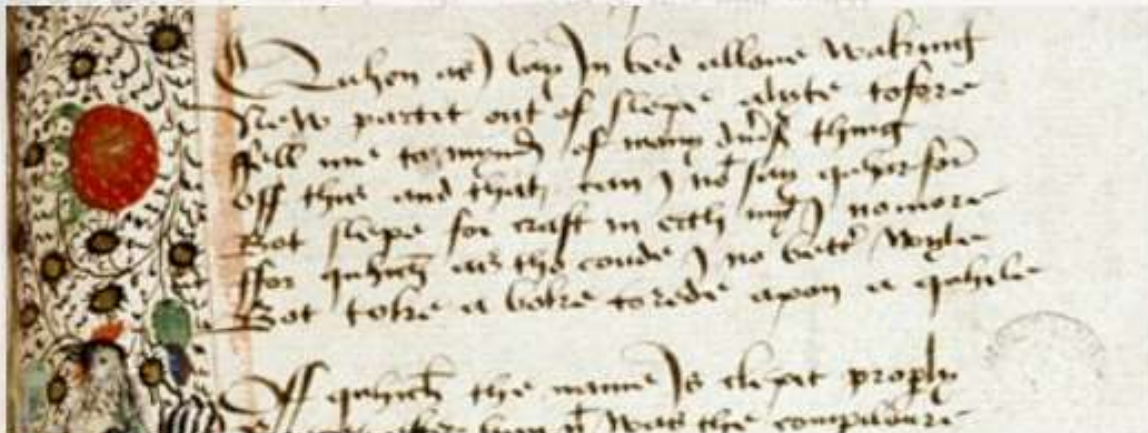 Quhen as I lay In bed allone waking
New partit out of slepe alyte tofore
ffell me to mynd of many diuerse thing
Off this and that can I noght say quharfore
Bot slepe for craft in erth myght I no more
ffor quhich as tho coude I no better wyle
Bot toke a boke to rede apon a quhile
Off quhich the name Is clepit properly
was the compiloure